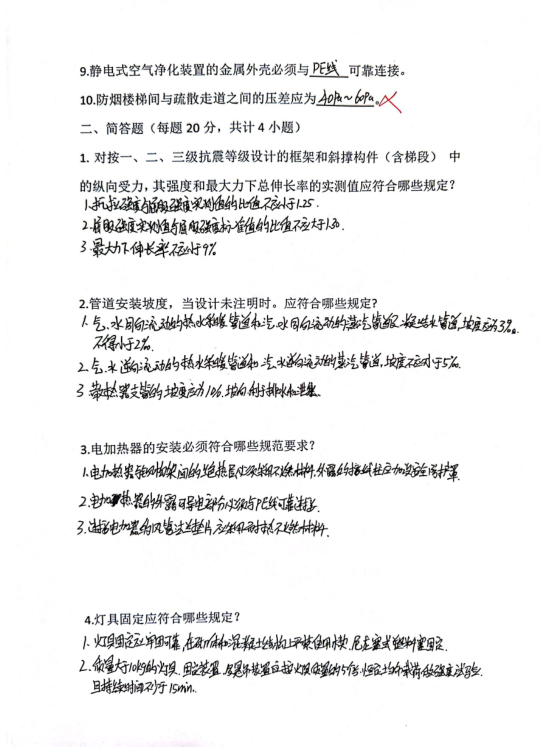 9.静电式空气净化装置的金属外壳必须与 PE线 可靠连接。
10.防烟楼梯间与疏散走道之间的压差应为 40Pa~60Pa。
二、简答题（每题 20 分，共计 4 小题）
1. 对按一、二、三级抗震等级设计的框架和斜撑构件（含梯段） 中
的纵向受力，其强度和最大力下总伸长率的实测值应符合哪些规定？
1.抗拉强度与屈服强度实测值的比值不应小于1.25.
2.屈服强度实测值与屈服强度标准值的比值不应大于1.30.
3 最大力下伸长率不应小于9%
2.管道安装坡度，当设计未注明时。应符合哪些规定?
1.气、水同向流动的热水采暖管道和汽、水同向流动的蒸汽管道及凝结水管道,坡度应为3‰.
不得小于2‰.
2.气、水逆向流动的热水采暖管道和汽、水逆向流动的蒸汽管道,坡度不应小于5‰.
3 散热器支管的坡度应为1%.坡向利于排水和泄水.
3.电加热器的安装必须符合哪些规范要求？
1.电加热器与钢构架间的绝热层必须采用不燃材料,外露的接线柱应加设安全防护罩.
2.电加热器的外露可导电部分必须与PE线可靠连接.
3.连接电加热器的风管法兰垫片应采用耐热不燃材料.
4.灯具固定应符合哪些规定？
1.灯具固定应牢固可靠,在砌体和混凝土结构上严禁使用木楔、尼龙塞或塑料塞固定.
2.质量大于10kg的灯具.固定装置及悬吊装置应按灯具重量的5倍恒定均布载荷做强度试验.
且持续时间不少于15min.